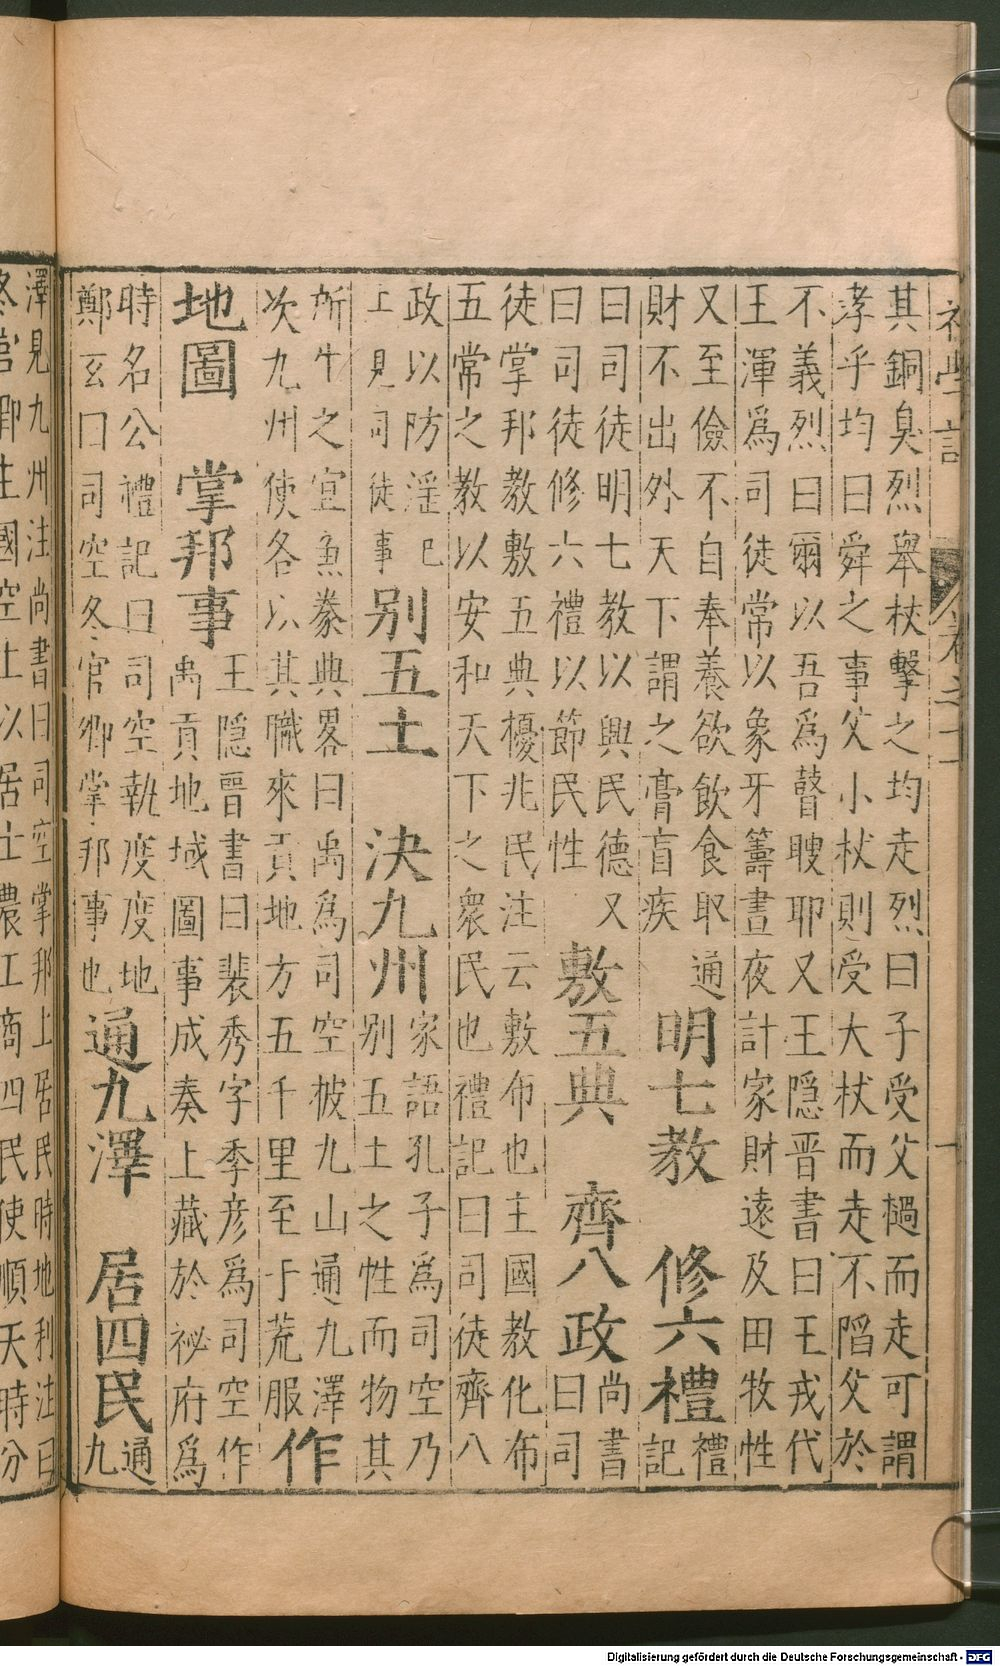 其銅臭烈舉杖擊之均走烈曰子受父撾而走可謂
孝乎均曰舜之事父小杖則受大杖而走不陷父於
不義烈曰爾以吾為瞽瞍耶又王隱晉書曰王戎代
王渾為司徒常以象牙籌晝夜計家財遠及田牧性
又至儉不自奉養欲飲食取通
財不出外天下謂之膏盲疾
明七教 修六禮
禮
記
曰司徒明七教以興民德又
曰司徒修六禮以節民性
敷五典 齊八政
尚書
曰司
徒掌邦教敷五典擾兆民注云敷布也主國教化布
五常之教以安和天下之衆民也禮記曰司徒齊八
政以防淫已
上見司徒事
别五土 決九州
家語孔子為司空乃
别五土之性而物其
所生之宜魚豢典畧曰禹為司空披九山通九澤
次九州使各以其職來貢地方五千里至于荒服
作
地圖 掌邦事
王隱晉書曰裴秀字季彥為司空作
禹貢地域圖事成奏上藏於祕府為
時名公禮記曰司空執度度地
鄭玄曰司空冬官卿掌邦事也
通九澤 居四民
通
九
澤見九州注尚書曰司空掌邦土居民時地利注曰
冬官卿主國空土以居士農工商四民使順天時分
Digitalisierung gefördert durch die Deutsche Forschungsgemeinschaft - DFG